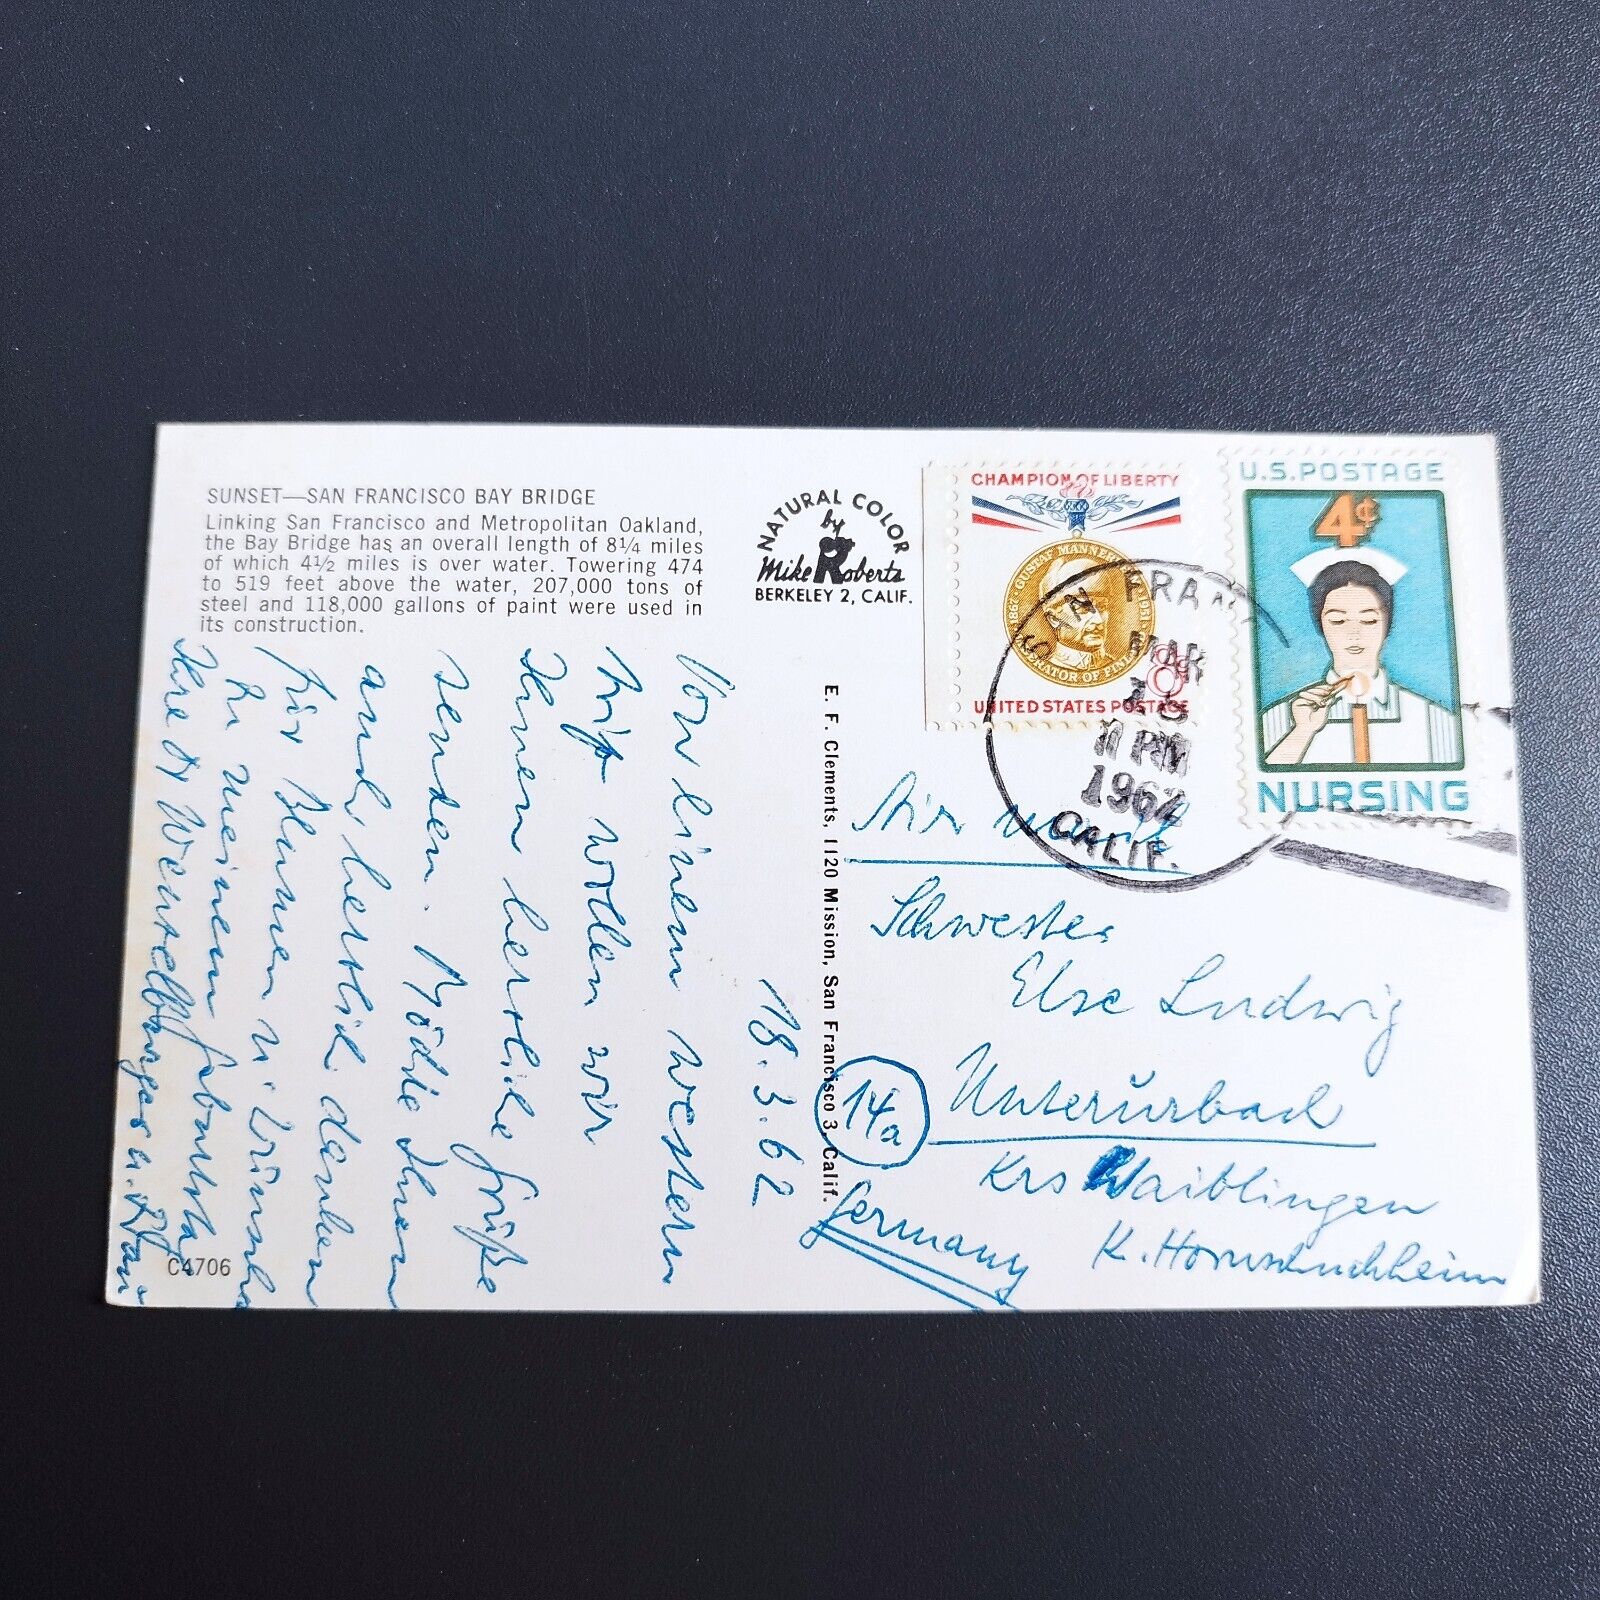 SUNSET—SAN FRANCISCO BAY BRIDGE
Linking San Francisco and Metropolitan Oakland,
the Bay Bridge has an overall length of 8¼ miles
of which 4½ miles is over water. Towering 474
to 519 feet above the water, 207,000 tons of
steel and 118,000 gallons of paint were used in
its construction.
NATURAL COLOR
by
Mike Roberts
BERKELEY 2, CALIF.
E. F. Clements, 1120 Mission, San Francisco 3, Calif.
C4706
18.3.62
Von einem western
wollen wir
Ihnen herzliche Grüße
senden. Möchte Ihnen
auch herzlich danken
für Blumen u.
zu meinem Geburtstag
Ihre
CHAMPION OF LIBERTY
1867 · GUSTAF MANNERHEIM · 1951
LIBERATOR OF FINLAND
8¢
UNITED STATES POSTAGE
U.S. POSTAGE
4¢
NURSING
SAN FRAN
MAR
18
11 PM
1962
CALIF.
Air mail
Schwester
Else Ludwig
14a
Unterurbach
Krs Waiblingen
Germany